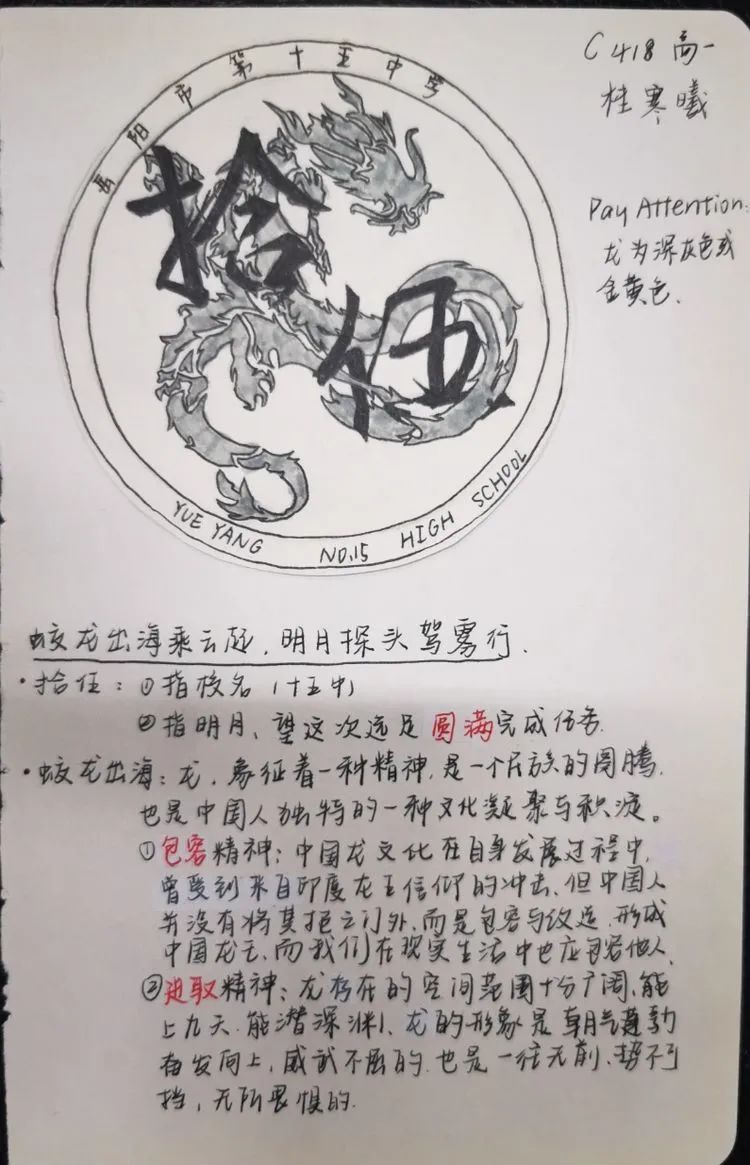 C418 高一
桂寒曦
Pay Attention:
龙为深灰色或
金黄色.
岳阳市第十五中学
拾伍
YUE YANG NO.15 HIGH SCHOOL
蛟龙出海乘云起,明月探头驾雾行.
·拾伍:①指校名(十五中)
②指明月、望这次远足圆满完成任务.
·蛟龙出海:龙,象征着一种精神,是一个民族的图腾,
也是中国人独特的一种文化凝聚与积淀。
①包容精神:中国龙文化在自身发展过程中,
曾受到来自印度龙王信仰的冲击,但中国人
并没有将其拒之门外,而是包容与改造,形成
中国龙王,而我们在现实生活中也应包容他人.
②进取精神:龙存在的空间范围十分广阔,能
上九天,能潜深渊、龙的形象是朝气蓬勃
奋发向上,威武不屈的.也是一往无前,势不可
挡,无所畏惧的.